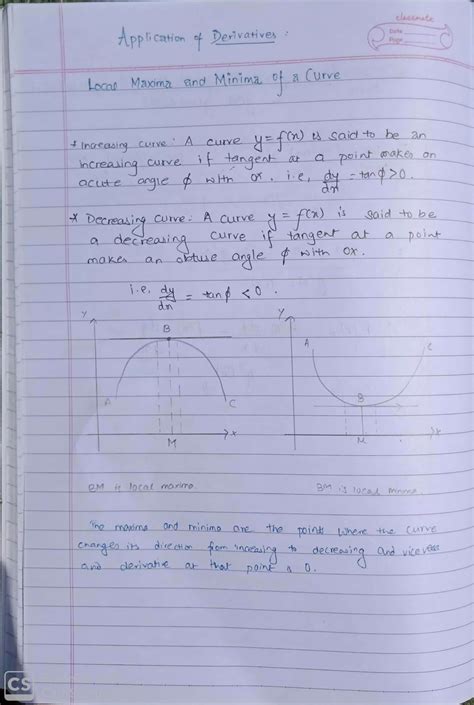 classmate
Date
Page
Application of Derivatives :
Local Maxima and Minima of a Curve
* Increasing curve : A curve y = f(x) is said to be an
increasing curve if tangent at a point makes an
acute angle ϕ with ox. i.e, dy/dx = tanϕ > 0.
* Decreasing curve : A curve y = f(x) is said to be
a decreasing curve if tangent at a point
makes an obtuse angle ϕ with ox.
i.e. dy/dx = tanϕ < 0.
Y
B
A
C
M
X
Y
A
C
B
M
X
BM is local maxima
BM is local minima.
The maxima and minima are the points where the curve
changes its direction from increasing to decreasing and vice versa
and derivative at that point is 0.
CS